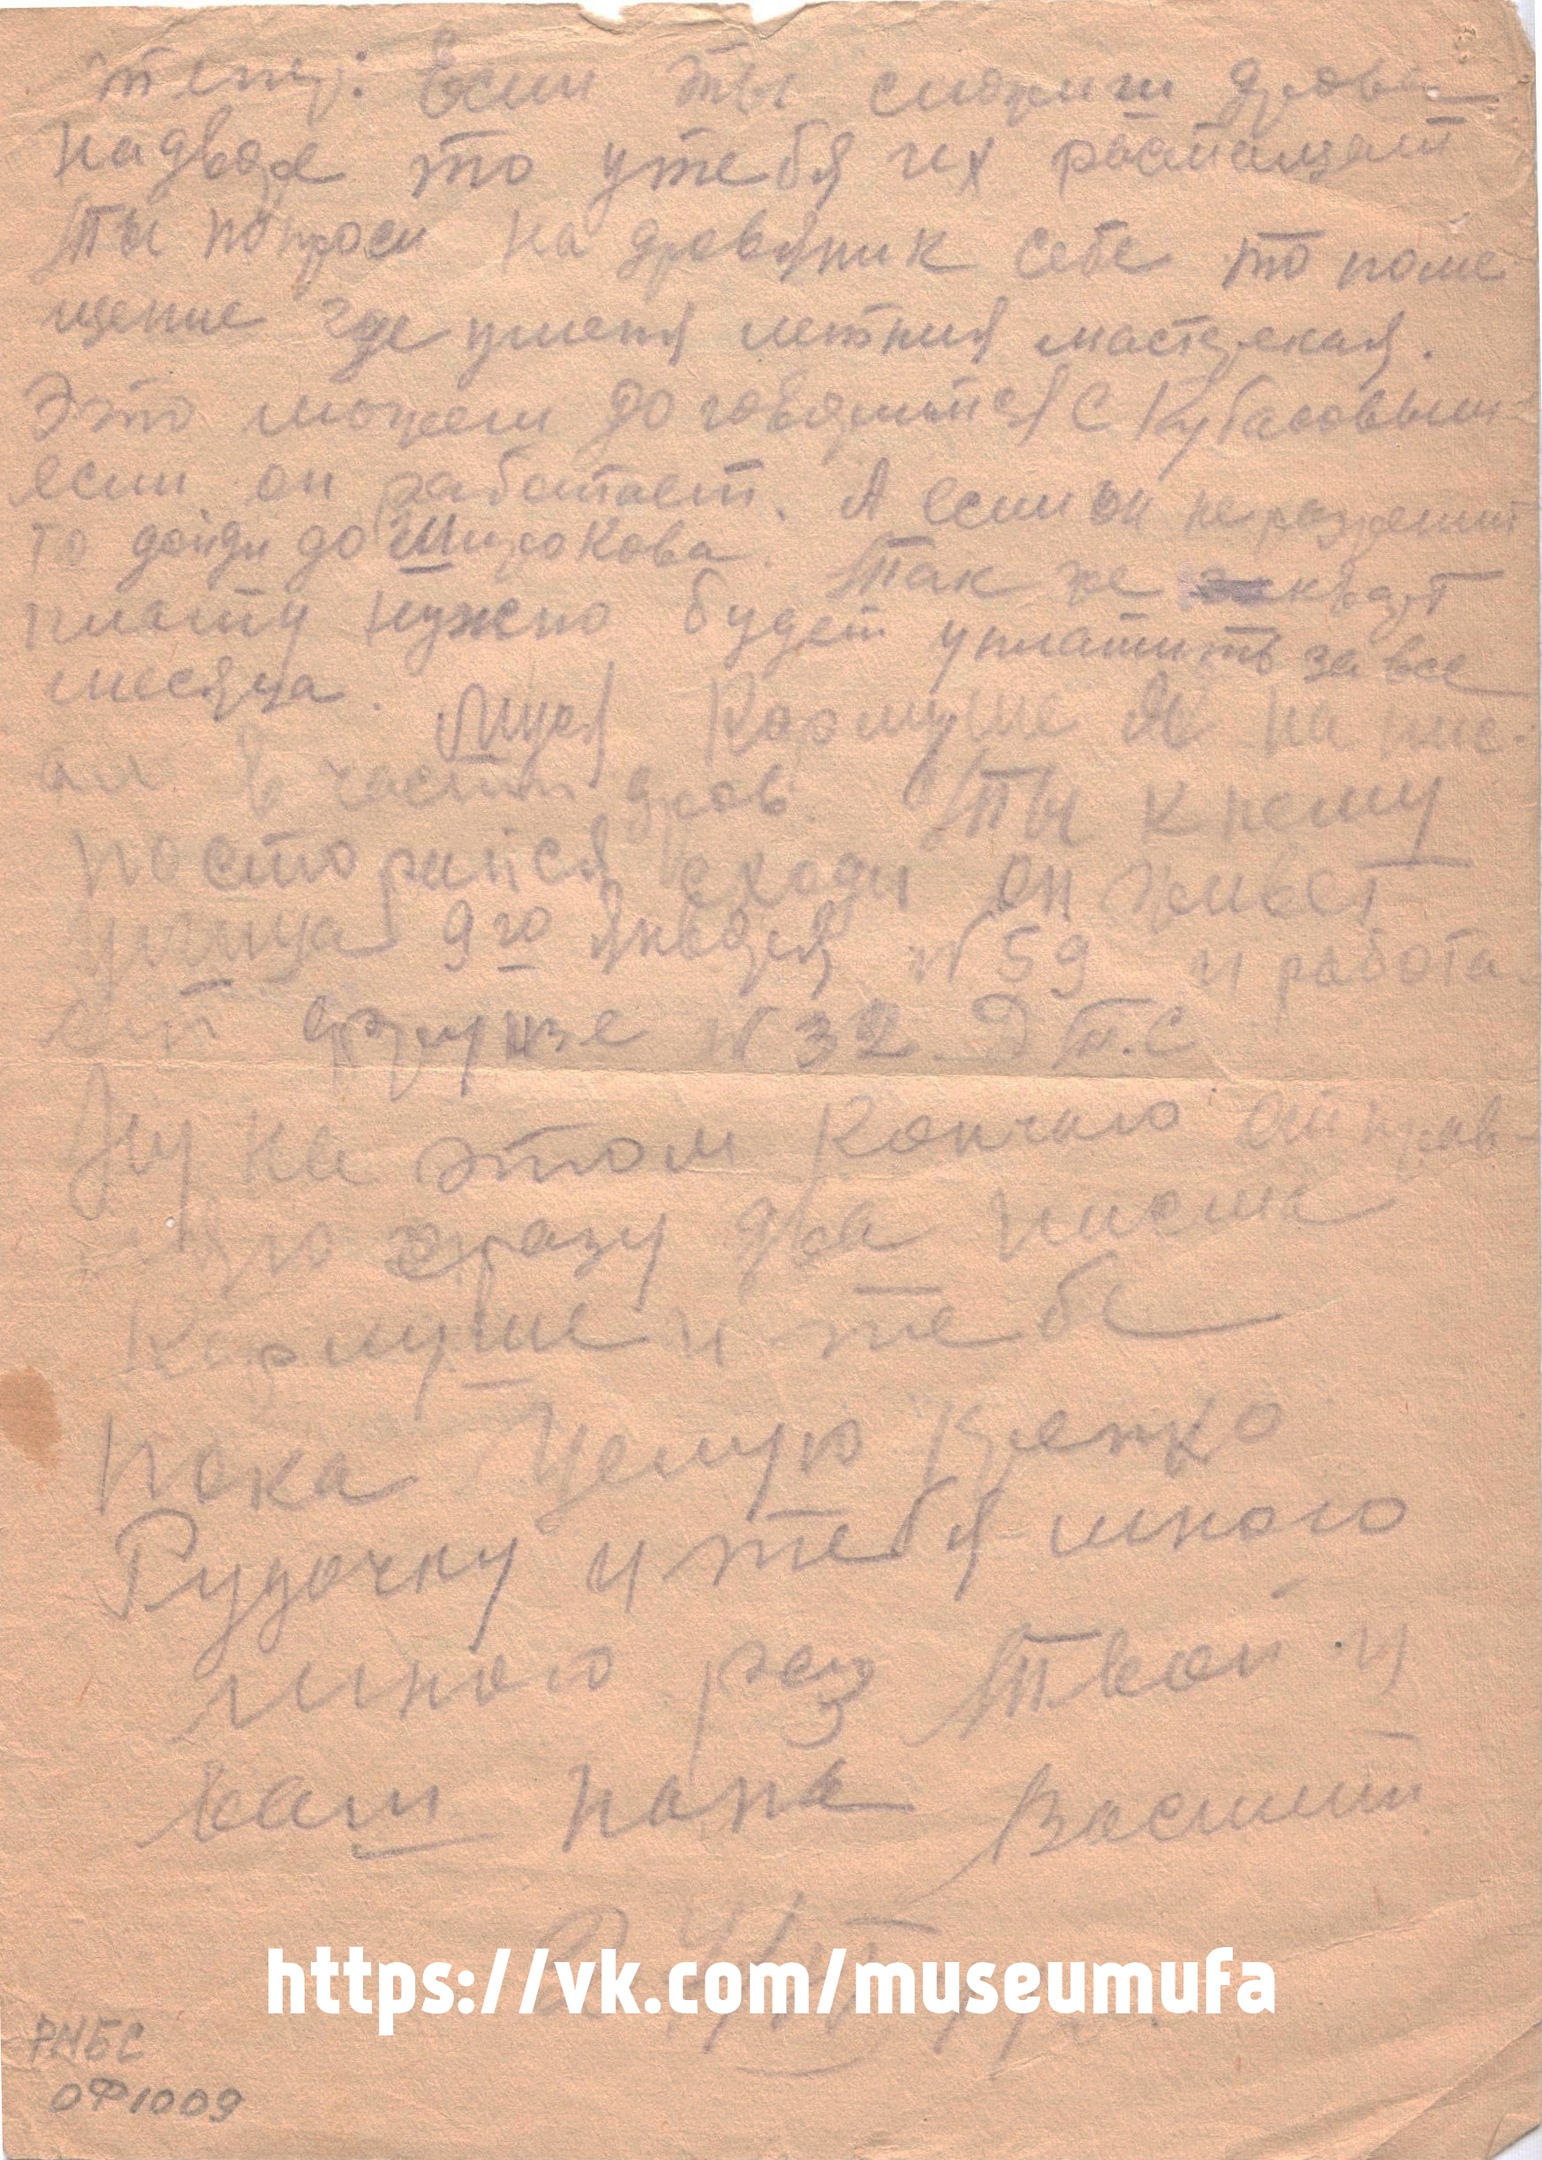 Если ты сложиш дрова
на дворе то у тебя их растащат
Ты попроси на дровяник себе то поме
щение где уменя летния мастерская.
Это можеш договорится с Кубасовым
если он работает. А если он не разрешит
то дойди до Широкова. Так же кварт
плату нужно будет уплатить за все
месяца. Муся Кармуше Я на пис.
ал в части дров. Ты к нему
постарайся сходи он живет
улица 9го Января N 59 и работа
ет N 32 Д Т.С
Ну на этом Кончаю отправ-
ляю сразу два писма
Кармуше и тебе
Пока Целую Крепко
Рудочку и тебя много
много раз Твой и
ваш папа Василий
https://vk.com/museumufa
РМБС
ОФ1009